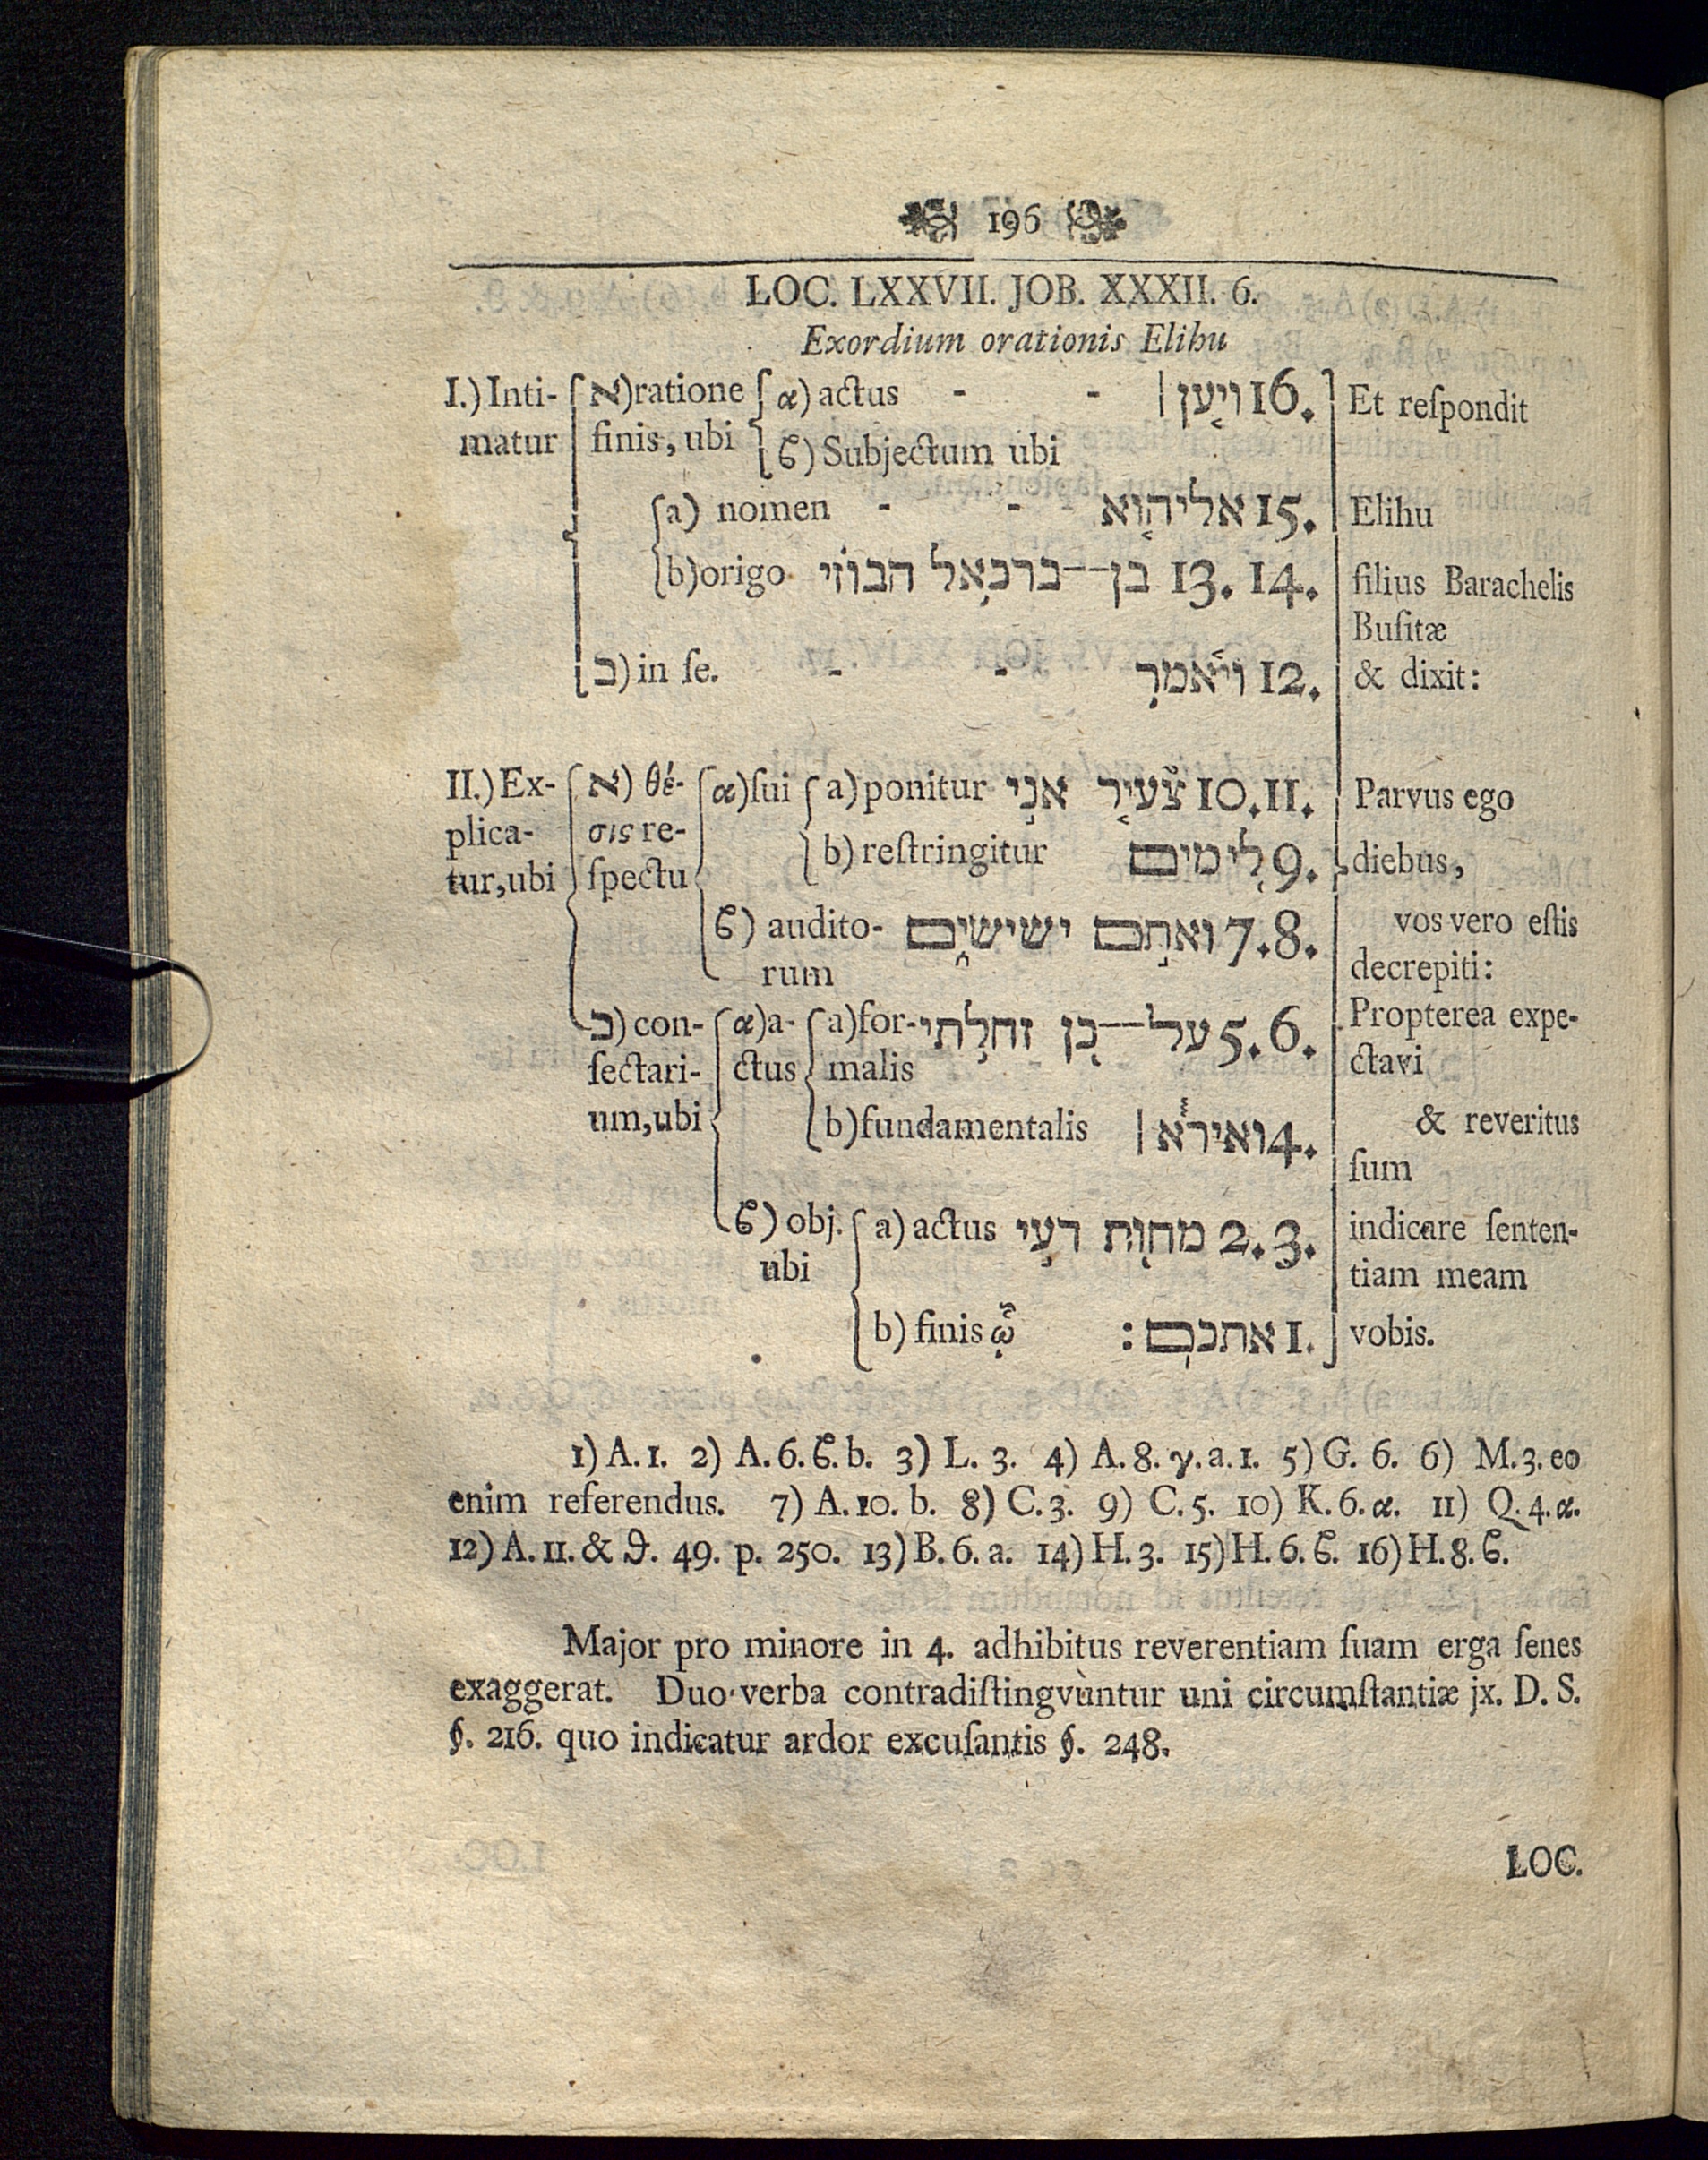 196
LOC. LXXVII. JOB. XXXII. 6.
Exordium orationis Elihu
I.) Inti- א) ratione α) actus - - ויען| 16. Et reſpondit
matur finis, ubi ϐ) Subjectum ubi
a) nomen - - אליהוא 15. Elihu
b) origo בן--ברכאל הבוזי 13. 14. filius Barachelis
Buſitæ
ב) in ſe. - - ויאמר 12. & dixit:
II.) Ex- א) θέ- α) ſui a) ponitur צעיר אני 10. 11. Parvus ego
plica- σις re-
tur, ubi ſpectu b) reſtringitur לימים 9. diebus,
ϐ) audito- ואתם ישישים 7. 8. vos vero eſtis
rum decrepiti:
ב) con- α) a- a) for- על--כן זחלתי 5. 6. Propterea expe-
ſectari- ctus malis ctavi
um, ubi b) fundamentalis ואירא| 4. & reveritus
ſum
ϐ) obj. a) actus מחות דעי 2. 3. indicare ſenten-
ubi tiam meam
b) finis ᾧ אתכם: 1. vobis.
1) A. 1. 2) A. 6. ϐ. b. 3) L. 3. 4) A. 8. γ. a. 1. 5) G. 6. 6) M. 3. eo
enim referendus. 7) A. 10. b. 8) C. 3. 9) C. 5. 10) K. 6. α. 11) Q. 4. α.
12) A. 11. & ϑ. 49. p. 250. 13) B. 6. a. 14) H. 3. 15) H. 6. ϐ. 16) H. 8. ϐ.
Major pro minore in 4. adhibitus reverentiam ſuam erga ſenes
exaggerat. Duo verba contradiſtingvuntur uni circumſtantiæ jx. D. S.
§. 216. quo indicatur ardor excuſantis §. 248.
LOC.